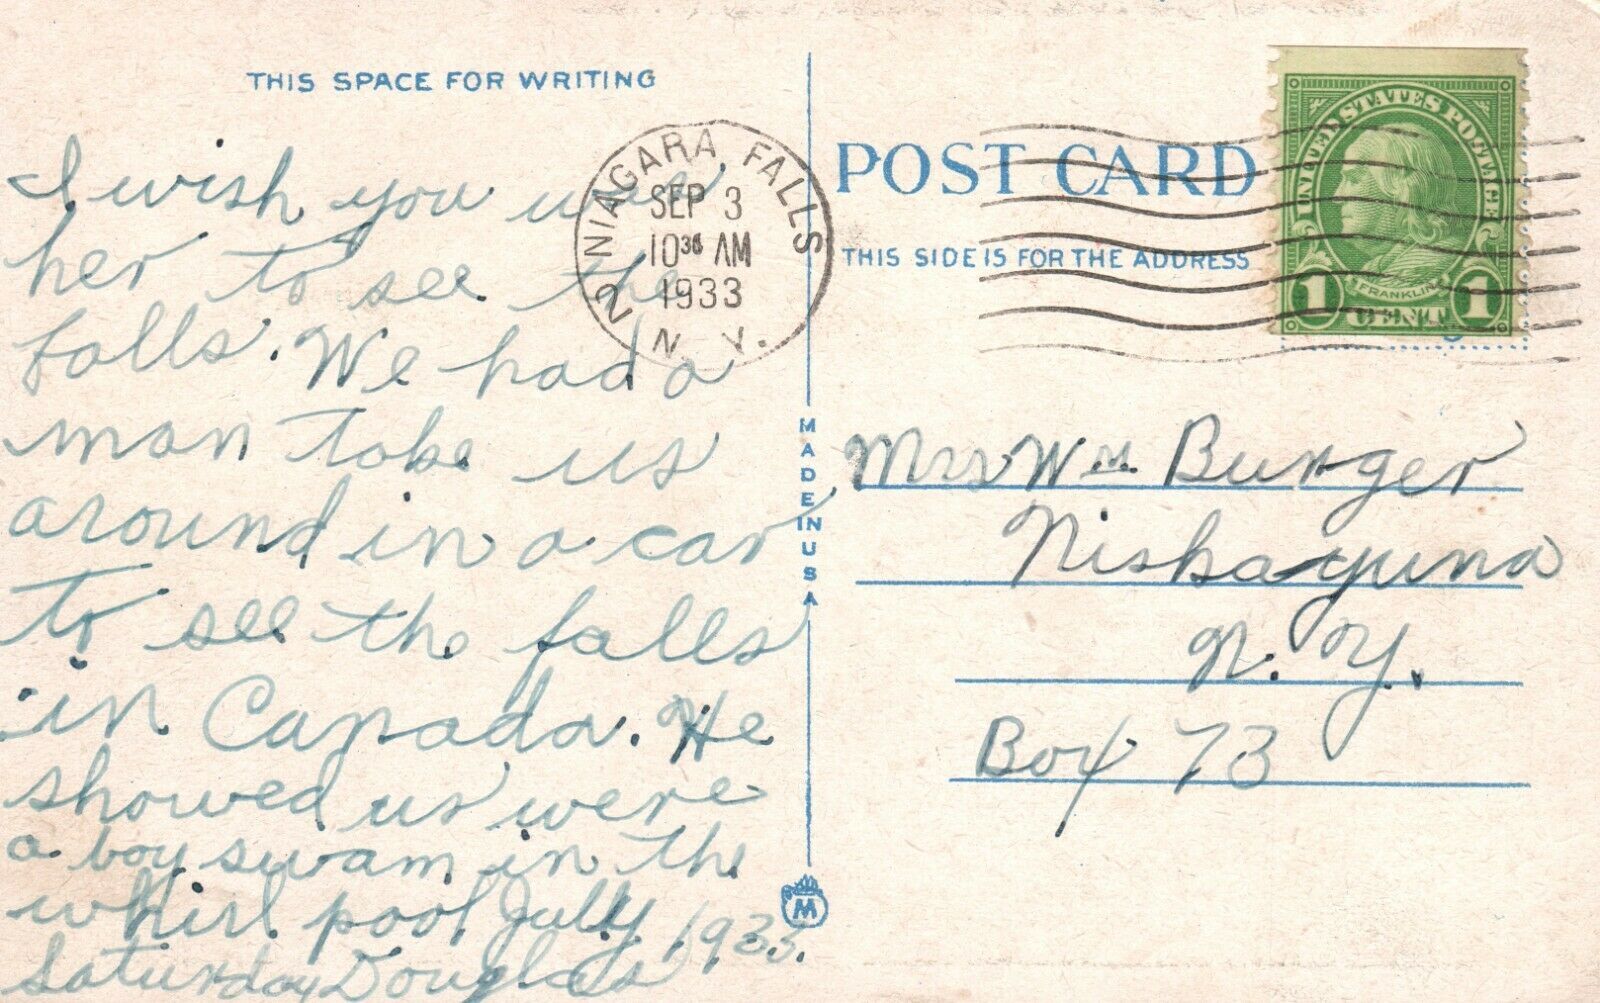 THIS SPACE FOR WRITING
I wish you were
her to see the
falls. We had a
man take us
around in a car
to see the falls
in Canada. He
showed us were
a boy swam in the
whirl pool July 1933.
Saturday Douglas
NIAGARA FALLS
2
SEP 3
10 30 AM
1933
N. Y.
MADE IN USA
M
POST CARD
THIS SIDE IS FOR THE ADDRESS
UNITED STATES POSTAGE
FRANKLIN
1 CENT 1
Mrs Wm. Burger
Niskayuna
N. Y.
Box 73